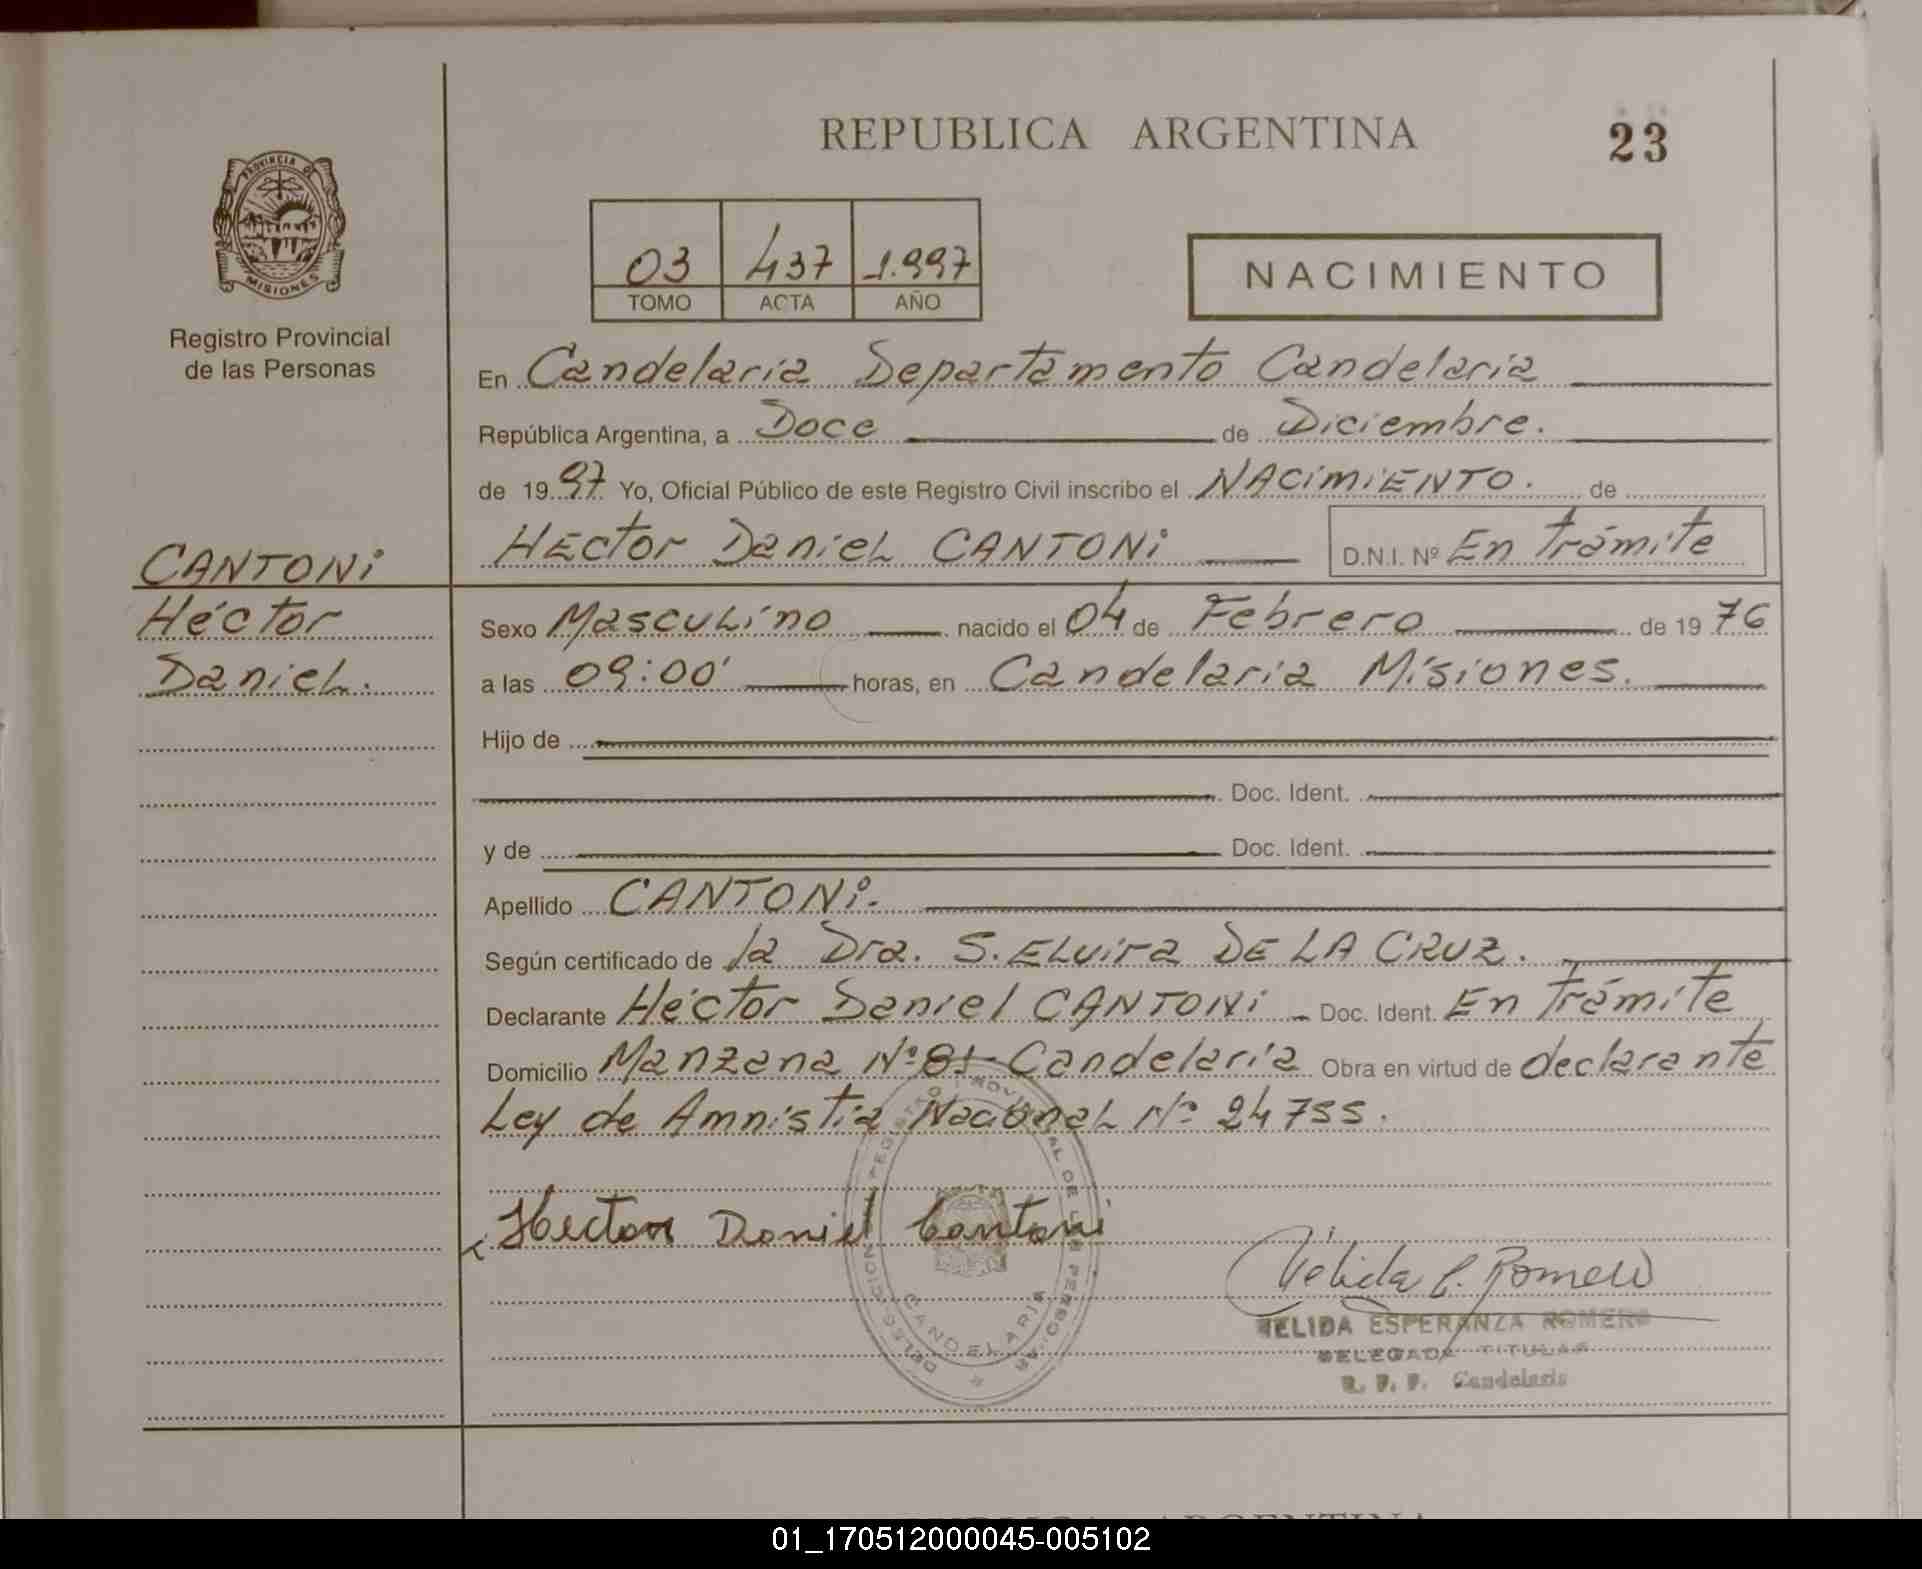 REPUBLICA ARGENTINA
23
PROVINCIA
MISIONES
Registro Provincial
de las Personas
03 437 1.997
TOMO ACTA AÑO
NACIMIENTO
En Candelaria Departamento Candelaria
República Argentina, a Doce de Diciembre.
de 1997 Yo, Oficial Público de este Registro Civil inscribo el NACiMiENTO. de
CANTONi
Héctor
Daniel.
HEctor Daniel CANTONi D.N.I. Nº En Trámite
Sexo Masculino nacido el 04 de Febrero de 1976
a las 09:00' horas, en Candelaria Misiones.
Hijo de
Doc. Ident.
y de Doc. Ident.
Apellido CANTONi.
Según certificado de la Dra. S. ELvira DE LA CRUZ.
Declarante Héctor Daniel CANTONi Doc. Ident. En Trámite
Domicilio Manzana Nº 81 Candelaria Obra en virtud de declarante
Ley de Amnistia Nacional Nº 24755.
Hector Daniel Cantoni
Nélida E. Romero
NELIDA ESPERANZA ROMERO
DELEGADA TITULAR
R. P. P. Candelaria
CANDELARIA
REPUBLICA ARGENTINA
01_170512000045-005102